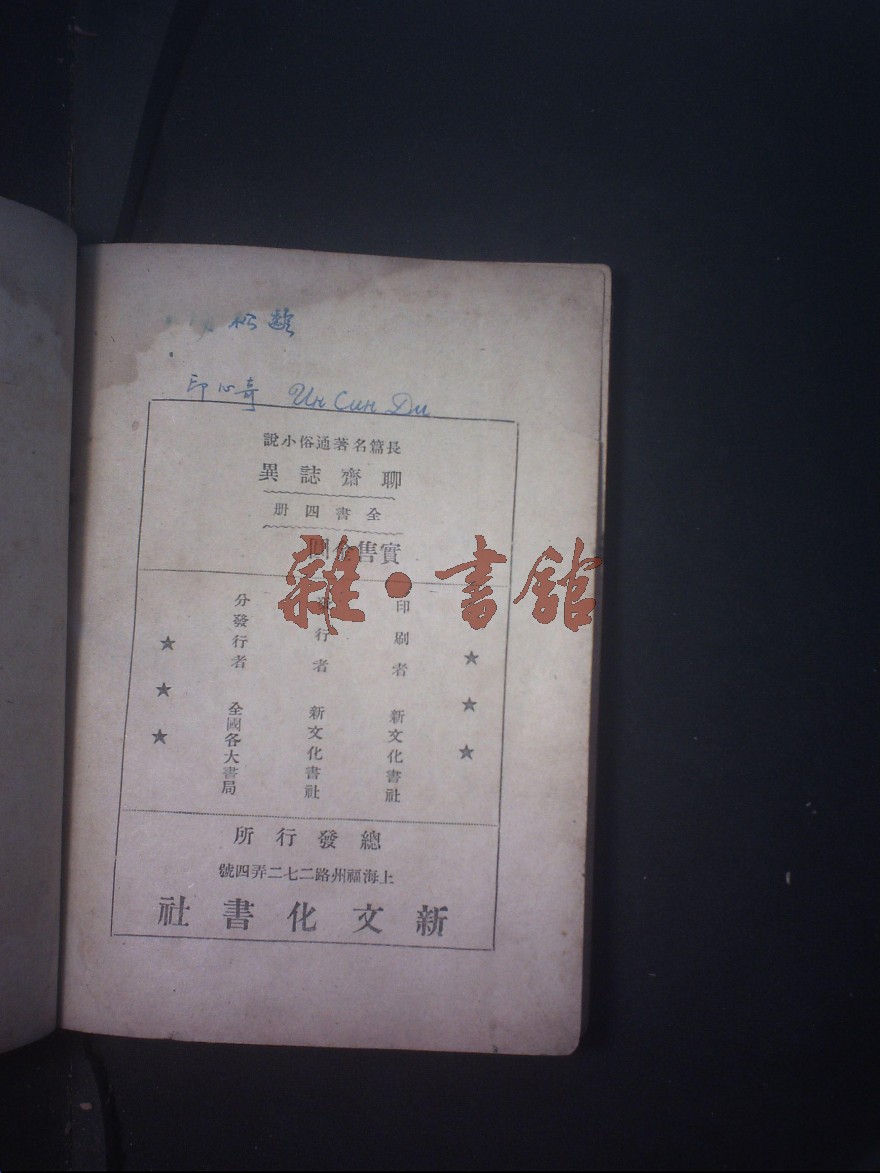 松齡
印心奇 Un Cun Du
長篇名著通俗小說
聊齋誌異
全書四册
實售
雜·書館
印刷者 新文化書社
行者 新文化書社
分發行者 全國各大書局
總發行所
上海福州路二七二弄四號
新文化書社